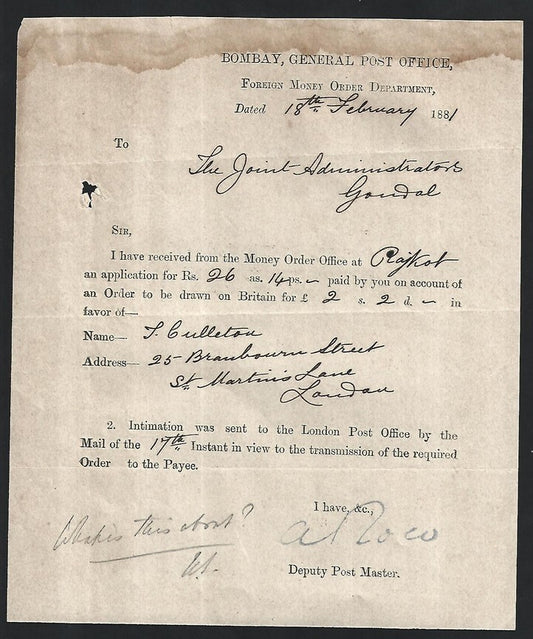 BOMBAY, GENERAL POST OFFICE,
FOREIGN MONEY ORDER DEPARTMENT,
Dated 18th February 1881
To
The Joint Administrators
Gondal
SIR,
I have received from the Money Order Office at Rajkot
an application for Rs. 26 as. 14 ps. — paid by you on account of
an Order to be drawn on Britain for £ 2 s. 2 d. — in
favor of—
Name— T. Culleton
Address— 25 Branbourn Street
St. Martins Lane
London
2. Intimation was sent to the London Post Office by the
Mail of the 17th Instant in view to the transmission of the required
Order to the Payee.
I have, &c.,
What is this about?
Deputy Post Master.